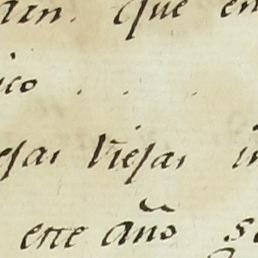 que en
ico . . .
esas viesas in
este año se